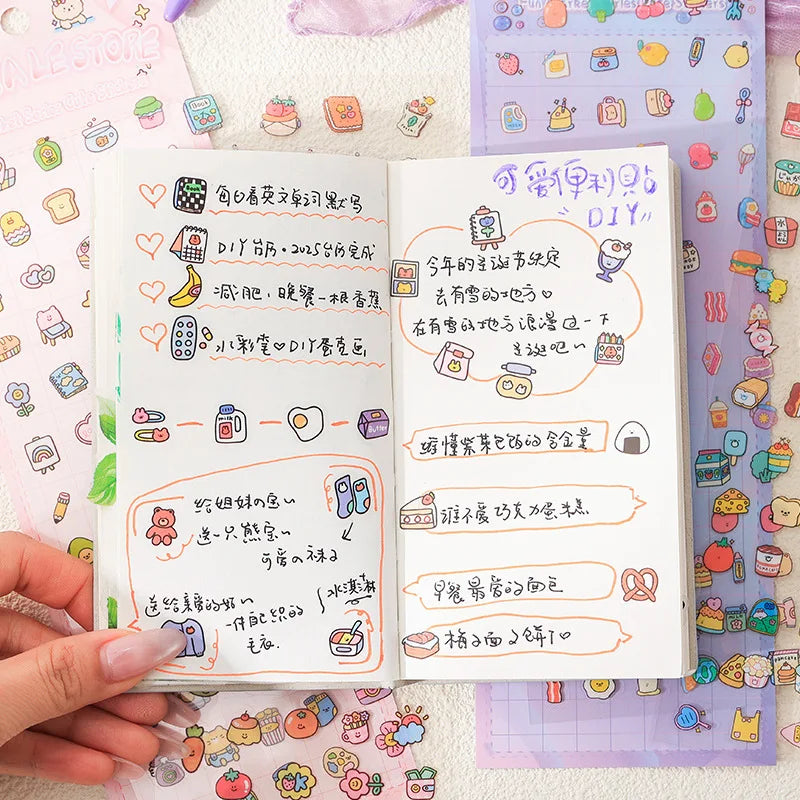 ALE STORE
Book
每日看英文单词默写
DIY台历·2025台历完成
减肥,晚餐一根香蕉
水彩笔♡DIY蛋壳画
milk
Butter
给姐妹の宝
送一只熊宝
可爱の袜子
送给亲爱的奶
一件自己织的
毛衣.
冰淇淋
可爱便利貼
DIY
今年的圣诞节决定
去有雪的地方♡
在有雪的地方浪漫过一下
圣诞吧
谁懂紫菜包饭的含金量
谁不爱巧克力蛋糕
早餐最爱的面包